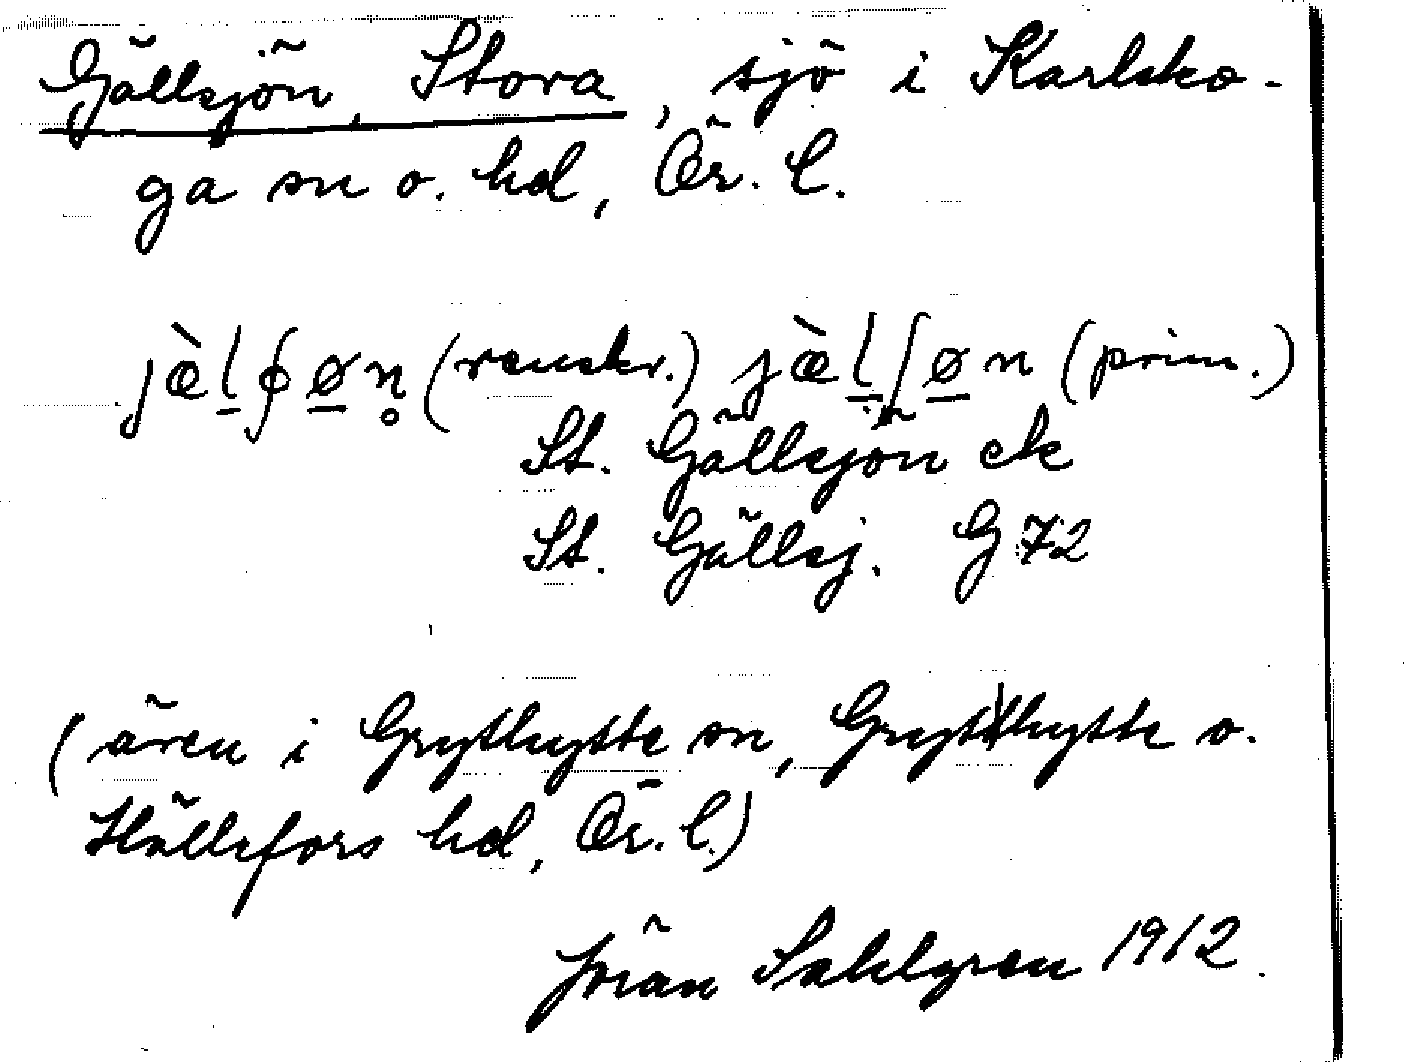 Gällsjön, Stora, sjö i Karlsko-
ga sn o. hd, Ör. l.
jæ̀l̠ʃø̠n̥ (renskr.) jæ̀l̠ʃø̠n (prim.)
St. Gällsjön ek
St. Gällsj. G 72
(även i Grythytte sn, Grythytte o.
Hällefors hd, Ör. l.)
Jöran Sahlgren 1912.